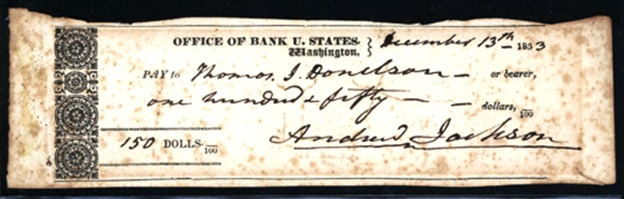 OFFICE OF BANK U. STATES. } December 13th 1833
Washington.
PAY to Thomas J. Donelson — or bearer,
one hundred & fifty — — dollars, /100
150 DOLLS. /100
Andrew Jackson